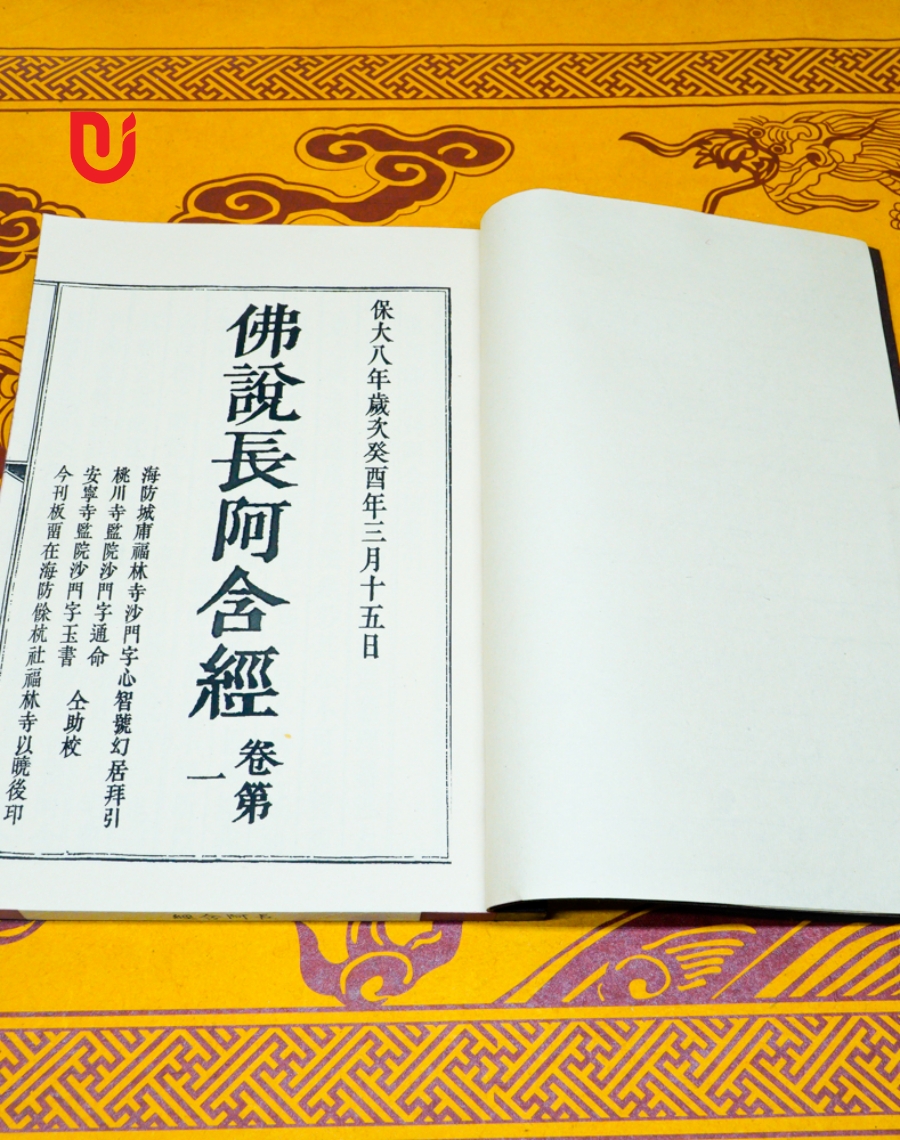 保大八年歲次癸酉年三月十五日
佛說長阿含經卷第一
海防城庯福林寺沙門字心智號幻居拜引
桃川寺監院沙門字通命
安寧寺監院沙門字玉書 仝助校
今刊板畱在海防餘杭社福林寺以曉後印